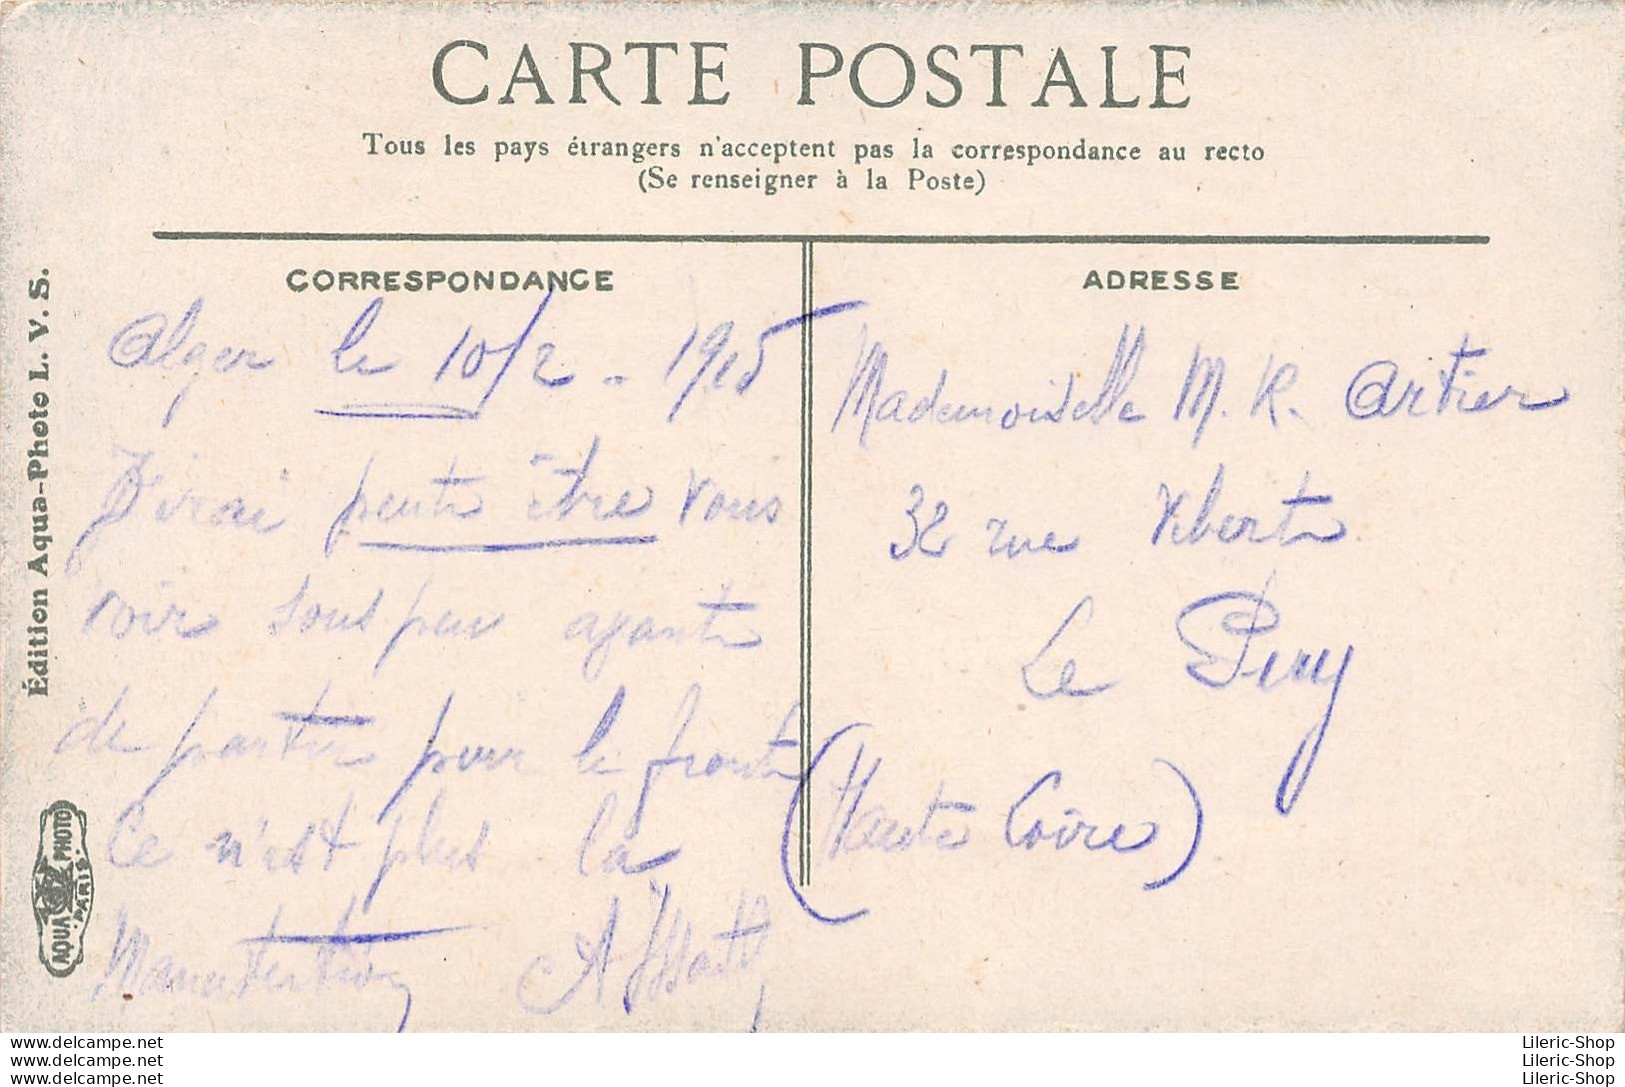 CARTE POSTALE
Tous les pays étrangers n'acceptent pas la correspondance au recto
(Se renseigner à la Poste)
CORRESPONDANCE
Alger le 10/2 - 1915
J'irai peut être vous
voir sous peu ayant
de partir pour le front
Ce n'est plus la
Manutention
ADRESSE
Mademoiselle M. R. Artier
32 rue Vibert
Le Puy
(Haute Loire)
Édition Aqua-Photo L. V. S.
AQUA PHOTO
PARIS
Lileric-Shop
Lileric-Shop
Lileric-Shop
Lileric-Shop
Lileric-Shop
Lileric-Shop